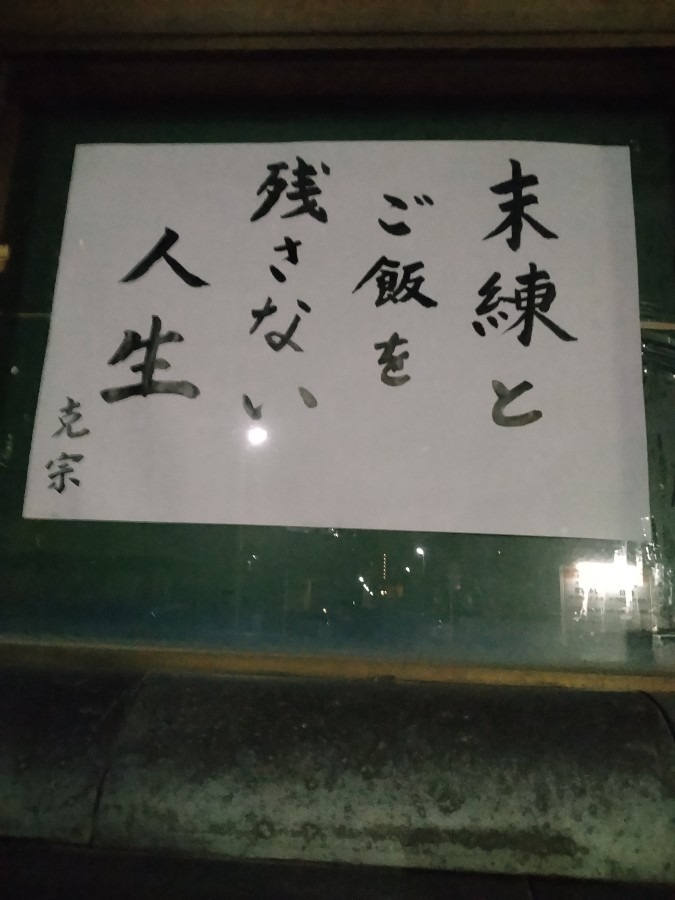 末練と
ご飯を
残さない
人生
克宗